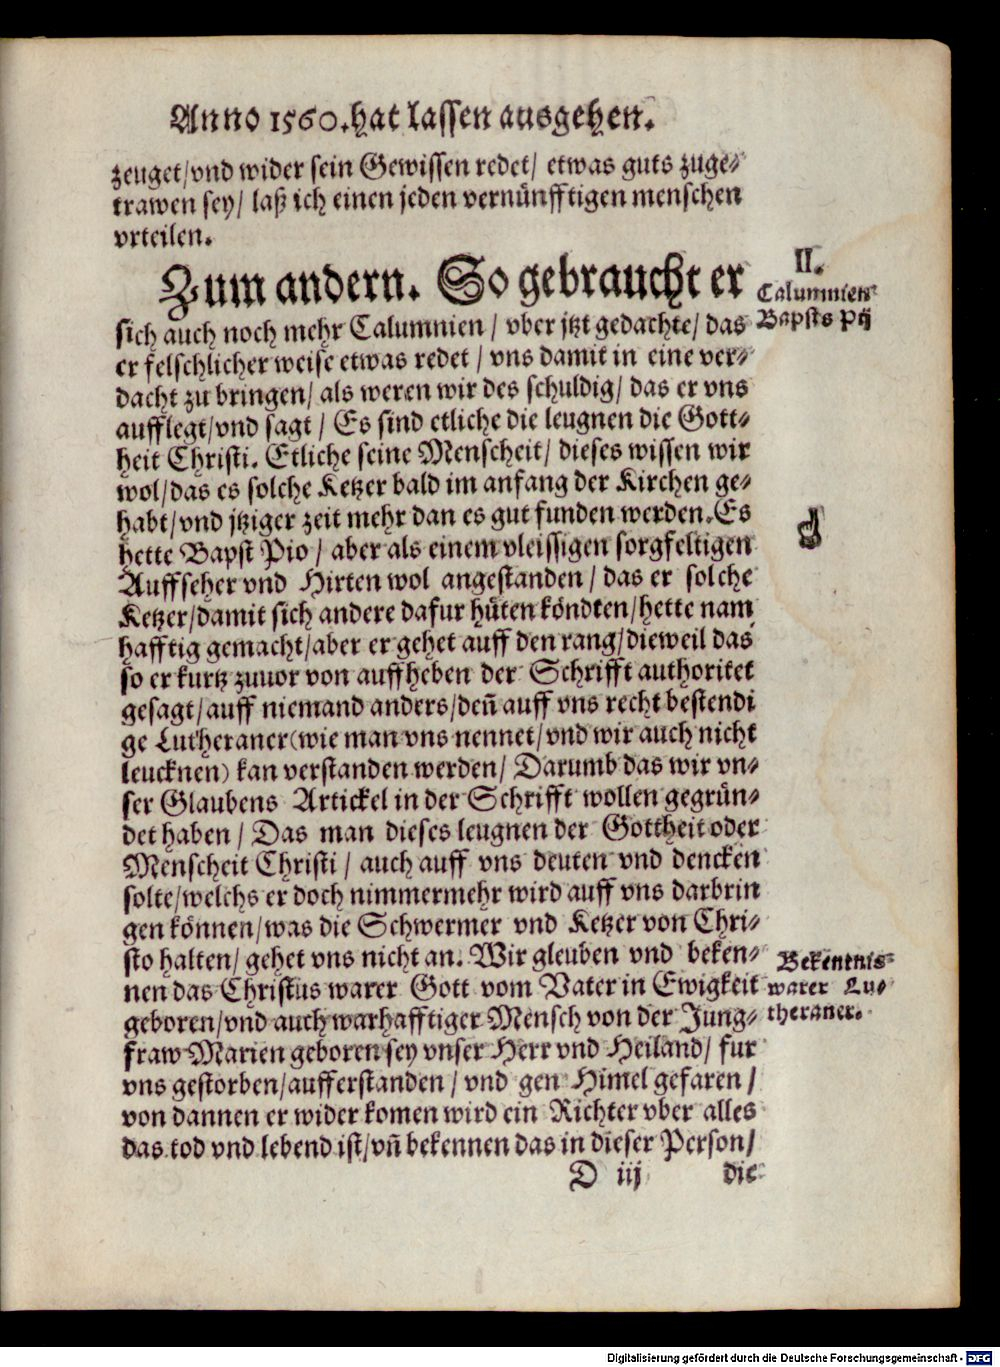 Anno 1560. hat lassen ausgehen.
zeuget/ vnd wider sein Gewissen redet/ etwas guts zuge-
trawen sey/ laß ich einen jeden vernünfftigen menschen
vrteilen.
Zum andern. So gebraucht er
II.
Calumnien
Bapsts Pij
sich auch noch mehr Calumnien/ vber jtzt gedachte/ das
er felschlicher weise etwas redet/ vns damit in eine ver-
dacht zu bringen/ als weren wir des schuldig/ das er vns
aufflegt/ vnd sagt/ Es sind etliche die leugnen die Gott-
heit Christi. Etliche seine Menscheit/ dieses wissen wir
wol/ das es solche Ketzer bald im anfang der Kirchen ge-
habt/ vnd jtziger zeit mehr dan es gut funden werden. Es
hette Bapst Pio/ aber als einem vleissigen sorgfeltigen
Auffseher vnd Hirten wol angestanden/ das er solche
Ketzer/ damit sich andere dafur hüten köndten/ hette nam
hafftig gemacht/ aber er gehet auff den rang/ dieweil das
so er kurtz zuuor von auffheben der Schrifft authoritet
gesagt/ auff niemand anders/ deñ auff vns recht bestendi
ge Lutheraner (wie man vns nennet/ vnd wir auch nicht
leucknen) kan verstanden werden/ Darumb das wir vn-
ser Glaubens Artickel in der Schrifft wollen gegrün-
det haben/ Das man dieses leugnen der Gottheit oder
Menscheit Christi/ auch auff vns deuten vnd dencken
solte/ welchs er doch nimmermehr wird auff vns darbrin
gen können/ was die Schwermer vnd Ketzer von Chri-
sto halten/ gehet vns nicht an. Wir gleuben vnd beken-
nen das Christus warer Gott vom Vater in Ewigkeit
geboren/ vnd auch warhafftiger Mensch von der Jung-
Bekentnis
warer Lu-
theraner.
fraw Marien geboren sey vnser Herr vnd Heiland/ fur
vns gestorben/ aufferstanden/ vnd gen Himel gefaren/
von dannen er wider komen wird ein Richter vber alles
das tod vnd lebend ist/ vñ bekennen das in dieser Person/
D iij die
Digitalisierung gefördert durch die Deutsche Forschungsgemeinschaft - DFG